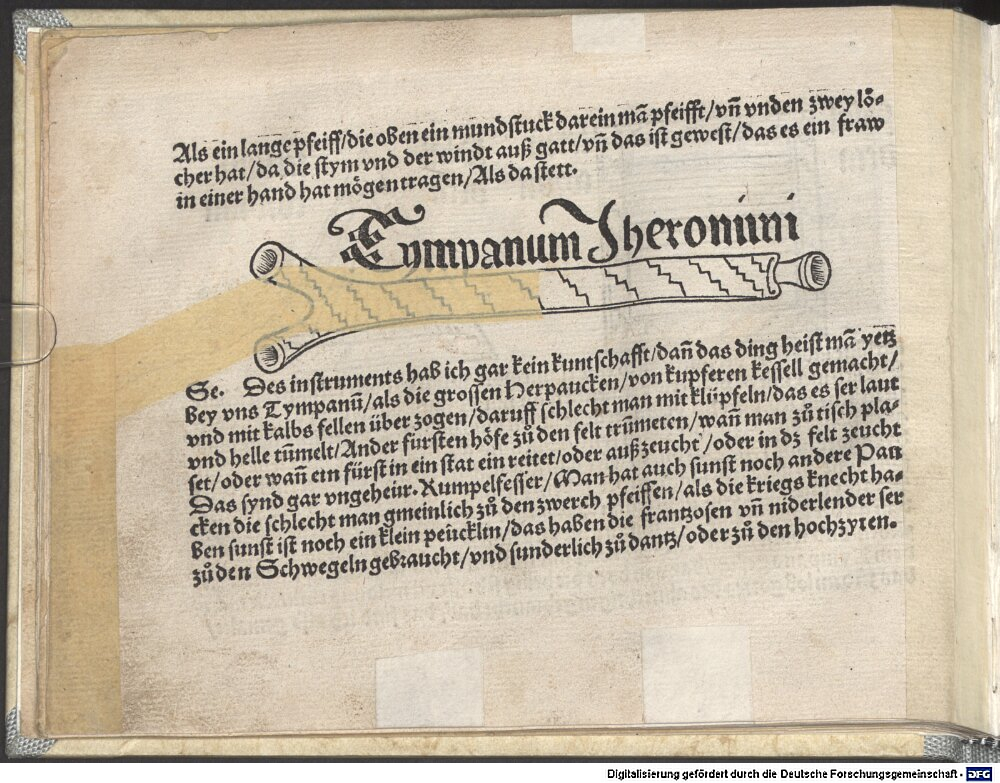 Als ein lange pfeiff/die oben ein mundstuck darein mā pfeifft/vn̄ vnden zwey lö-
cher hat/da die stym vnd der windt auß gatt/vn̄ das ist gewest/das es ein fraw
in einer hand hat mögen tragen/Als da stett.
Tympanum Jheronimi
Se. Des instruments hab ich gar kein kuntschafft/dan̄ das ding heist mā yetz
bey vns Tympanū/als die grossen Herpaucken/von kupferen kessell gemacht/
vnd mit kalbs fellen über zogen/daruff schlecht man mit klüpfeln/das es ser laut
vnd helle tūmelt/Ander fürsten höfe zů den felt trūmeten/wan̄ man zů tisch pla-
set/oder wan̄ ein fürst in ein stat ein reitet/oder außzeucht/oder in dz felt zeucht
Das synd gar vngeheir. Rumpelfesser/Man hat auch sunst noch andere Pau
cken die schlecht man gmeinlich zů den zwerch pfeiffen/als die kriegs knecht ha-
ben sunst ist noch ein klein peücklin/das haben die frantzosen vn̄ niderlender ser
zů den Schwegeln gebraucht/vnd sunderlich zů dantz/oder zů den hochzyten.
Digitalisierung gefördert durch die Deutsche Forschungsgemeinschaft - DFG